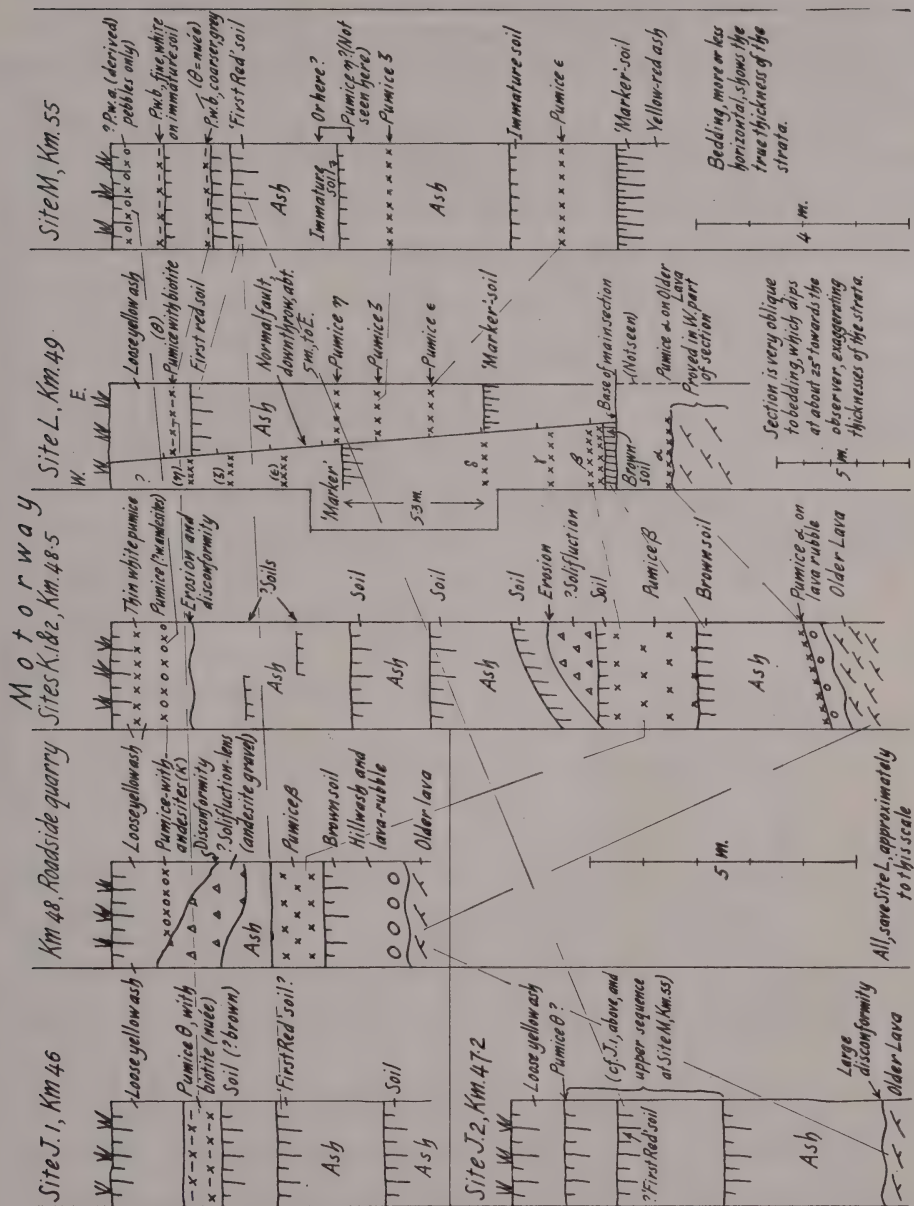 Motorway
Site J.1, Km 46
Loose yellow ash
Pumice θ, with
biotite (nuée)
Soil (? brown)
'First Red' soil?
Ash
Soil
Ash
Site J.2, Km. 47·2
Loose yellow ash
Pumice θ?
(cf. J.1, above, and
upper sequence
at Site M, Km. 55)
?'First Red' soil
Ash
Large
disconformity
Older Lava
Km 48, Roadside quarry
Loose yellow ash
Pumice-with-
andesites (κ)
Disconformity
? Solifluction-lens
(andesite gravel)
Ash
Pumice β
Brown soil
Hillwash and
lava-rubble
Older lava
5 m.
All, save Site L, approximately
to this scale
Sites K.1 & 2, Km. 48·5
Thin white pumice
Pumice (? w. andesites)
Erosion and
disconformity
? Soils
Ash
Soil
Ash
Soil
Ash
Soil
Erosion
? Solifluction
Soil
Pumice β
Brown soil
Ash
Pumice α on
lava rubble
Older Lava
Site L, Km. 49
W. E.
Loose yellow ash
?
(θ)
Pumice with biotite
First red soil
(η)
(ζ)
(ε)
Ash
Normal fault,
downthrow, abt.
5 m., to E.
Pumice η
Pumice ζ
Pumice ε
'Marker'
5·3 m.
'Marker'-soil
δ
γ
β
Brown
soil
Base of main section
(Not seen)
α
Pumice α on Older
Lava
Proved in W. part
of section
Section is very oblique
to bedding, which dips
at about 25° towards the
observer, exaggerating
thicknesses of the strata.
5 m.
Site M, Km. 55
? P.w.a. (derived
pebbles only)
P.w.b., fine, white
on immature soil
(θ = nuée)
P.w.b., coarser, grey
'First Red' soil
Ash
Or here?
Immature
soil?
Pumice η? (Not
seen here)
Pumice ζ
Ash
Immature soil
Pumice ε
'Marker'-soil
Yellow-red ash
Bedding, more or less
horizontal, shows the
true thickness of the
strata.
4 m.